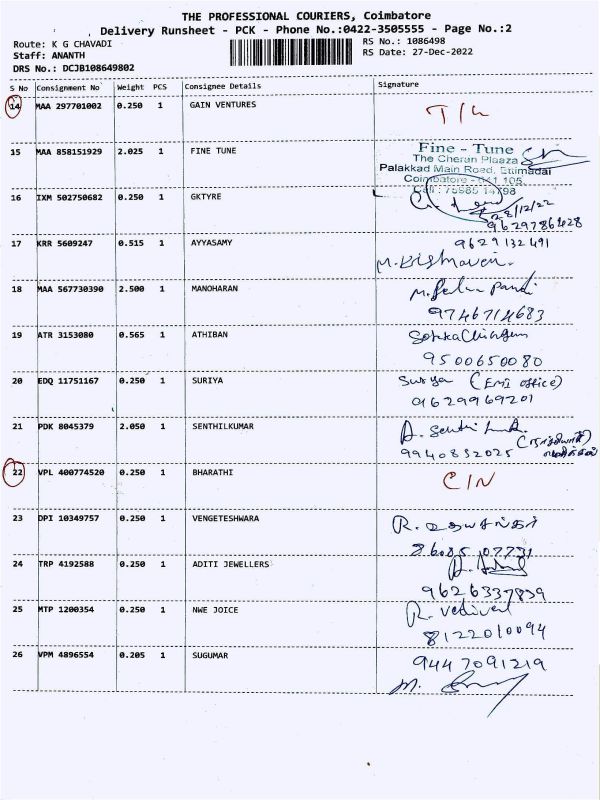 THE PROFESSIONAL COURIERS, Coimbatore
Delivery Runsheet - PCK - Phone No.:0422-3505555 - Page No.:2
Route: K G CHAVADI
RS No.: 1086498
Staff: ANANTH
RS Date: 27-Dec-2022
DRS No.: DCJB108649802
S No Consignment No Weight PCS Consignee Details Signature
14 MAA 297701002 0.250 1 GAIN VENTURES
15 MAA 858151929 2.025 1 FINE TUNE Fine - Tune
The Cheran Plaaza
Palakkad Main Road, Ettimadai
Coimbatore - 641 105
Cell : 75985 14798
16 IXM 502750682 0.250 1 GKTYRE
9629786428
17 KRR 5609247 0.515 1 AYYASAMY 9629132491
18 MAA 567730390 2.500 1 MANOHARAN
9746714683
19 ATR 3153080 0.565 1 ATHIBAN
9500650080
20 EDQ 11751167 0.250 1 SURIYA Surya (EMI office)
9629969201
21 PDK 8045379 2.050 1 SENTHILKUMAR
9940832025
22 VPL 400774520 0.250 1 BHARATHI
23 DPI 10349757 0.250 1 VENGETESHWARA
86085 07731
24 TRP 4192588 0.250 1 ADITI JEWELLERS
9626337839
25 MTP 1200354 0.250 1 NWE JOICE R. Vedivel
8122010094
26 VPM 4896554 0.205 1 SUGUMAR 9447091219